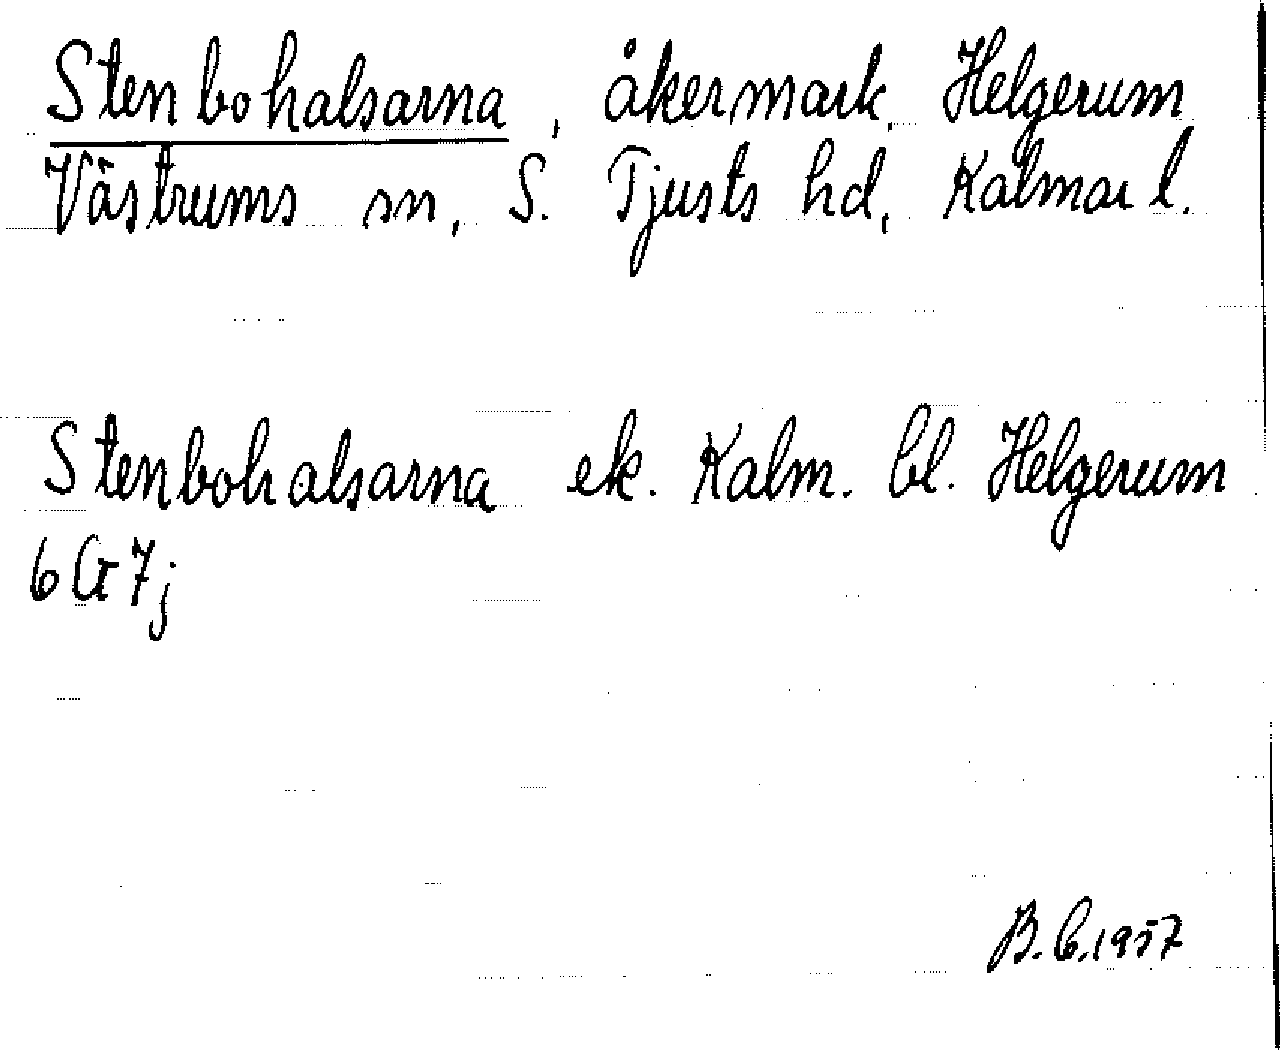 Stenbohalsarna, åkermark, Helgerum
Västrums sn, S. Tjusts hd, Kalmar l.
Stenbohalsarna ek. Kalm. bl. Helgerum
6 G 7j
B.C.1957